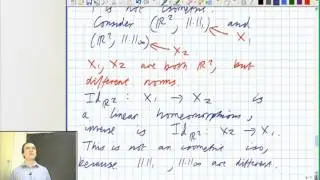 is not isometric.
Consider (ℝ², ||·||₁) and
(ℝ², ||·||∞) X₁
X₂
X₁, X₂ are both ℝ², but
different norms.
Id_ℝ² : X₁ → X₂ is
a linear homeomorphism,
inverse is Id_ℝ² : X₂ → X₁.
This is not an isometric iso,
because ||·||₁, ||·||∞ are different.